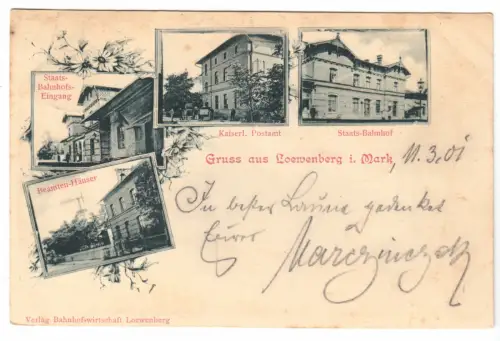 Staats-
Bahnhofs-
Eingang
Kaiserl. Postamt
Staats-Bahnhof
Beamten-Häuser
Gruss aus Loewenberg i. Mark, 11.3.01
In bester Laune gedenket
Eurer
Verlag Bahnhofswirtschaft Loewenberg